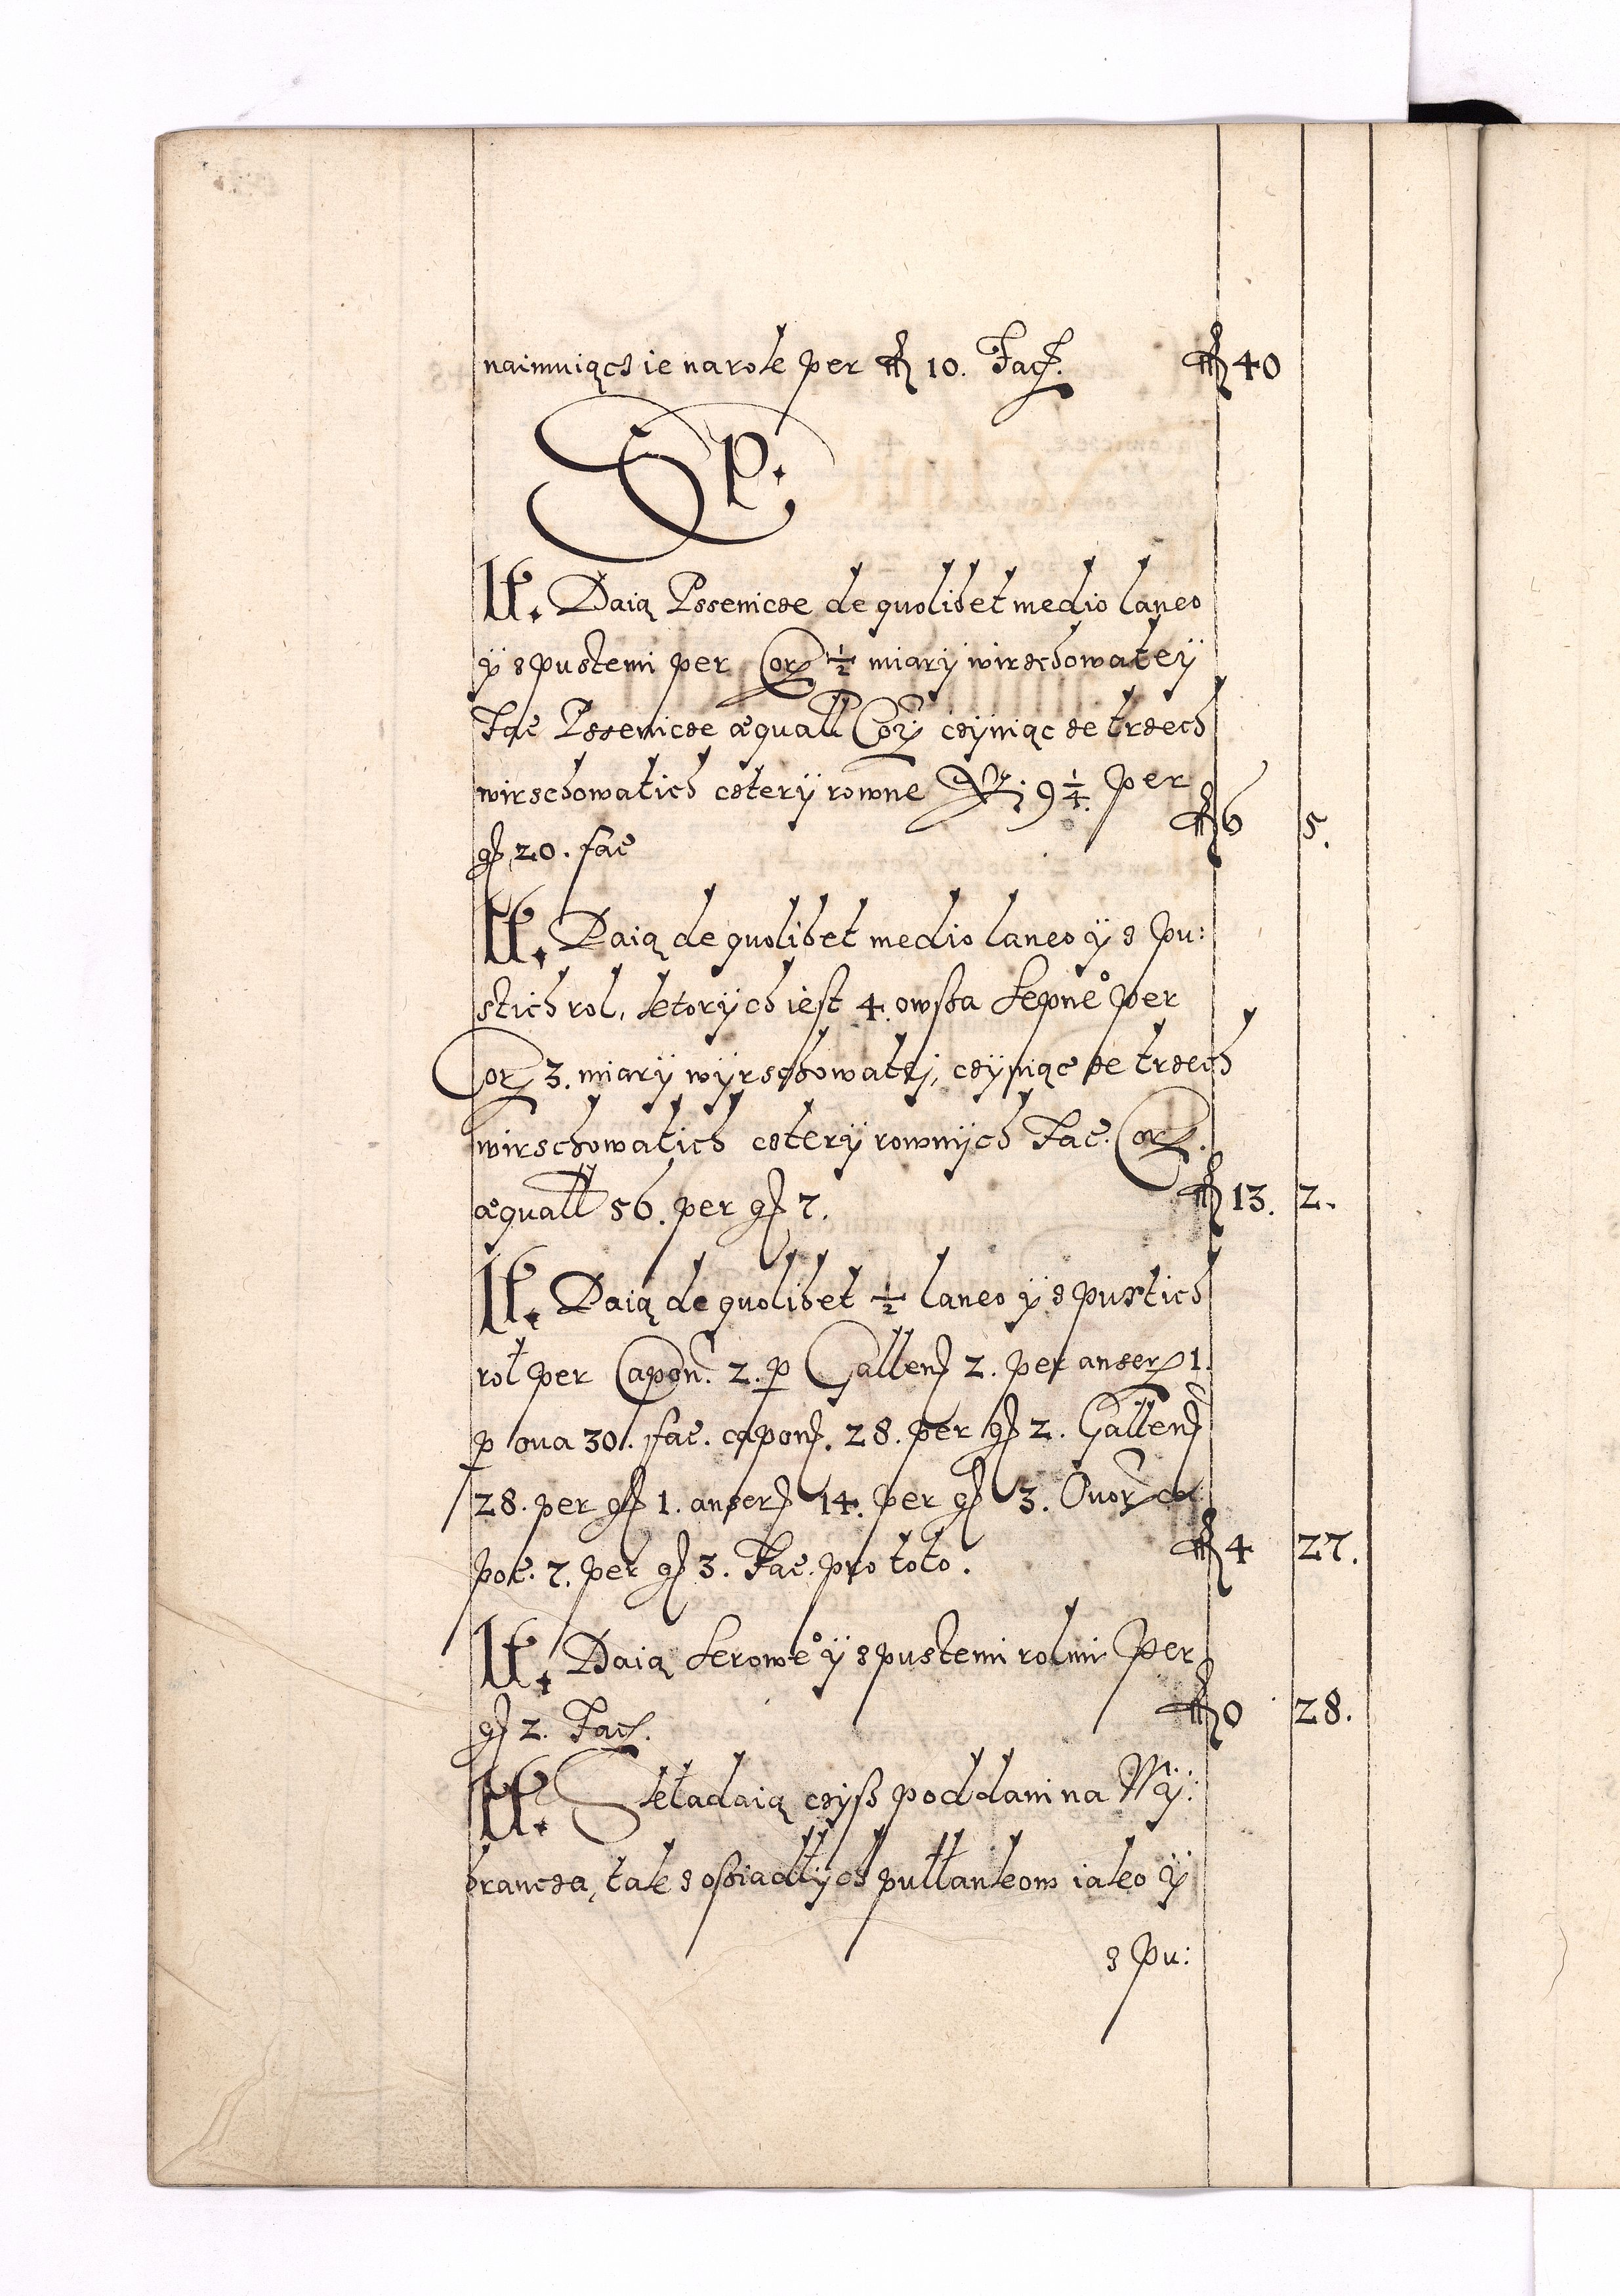 naimuiącz ie na rok per ꟻ 10. Facȷ̃. ꟻ 40
P:
It. Daią Pszenicze de quolibet medio laneo
ÿ z pustemi per Cor. ½ miarÿ wirzchowateÿ
Fac Pszenicze æquall Cor czÿniąc ze trzech
wirzchowatich czterÿ rowne 9 ¼. per
gȷ 20. fac 6 5.
It. Daią de quolibet medio laneo ÿ z pu:
stich rol, ktorÿch iest 4. owssa sepne° per
Cor 3. miarÿ wÿrzchowatej, czÿniąc ze trzech
wirzchowatich czterÿ rownÿch Fac. Cor.
æquall 56. per gȷ 7. 13. 2.
It. Daią de quolibet ½ laneo ÿ z pustich
rol per Capon. 2. p Gallenȷ 2. per anser 1.
p oua 30. fac. caponȷ. 28. per gȷ 2. Gallenȷ
28. per gȷ 1. anserȷ 14. per gȷ 3. Ouor sexa
poe. 7. per gȷ 3. Fac. pro toto. 4 27.
It. Daią serowe° ÿ z pustemi rolmi per
gȷ 2. Facȷ. 0 28.
It. Składaią czÿß poddani na Wÿ:
brancza, tak z oßiadłÿch pułłankow iako ÿ
z pu: